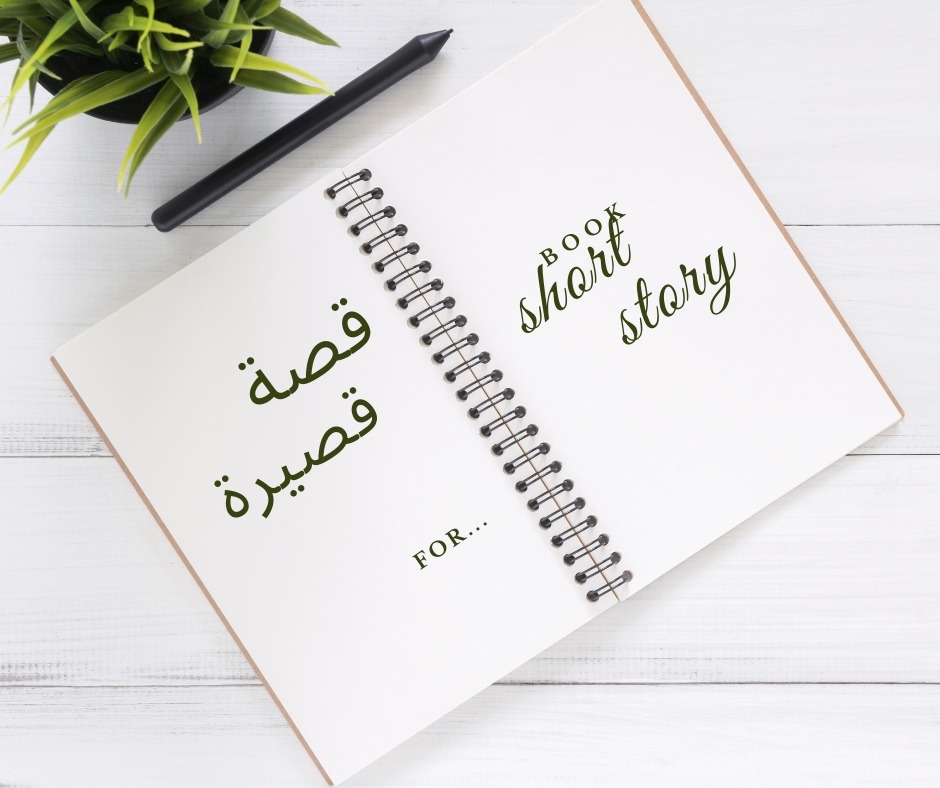 قصة
قصيرة
FOR...
BOOK
short
story